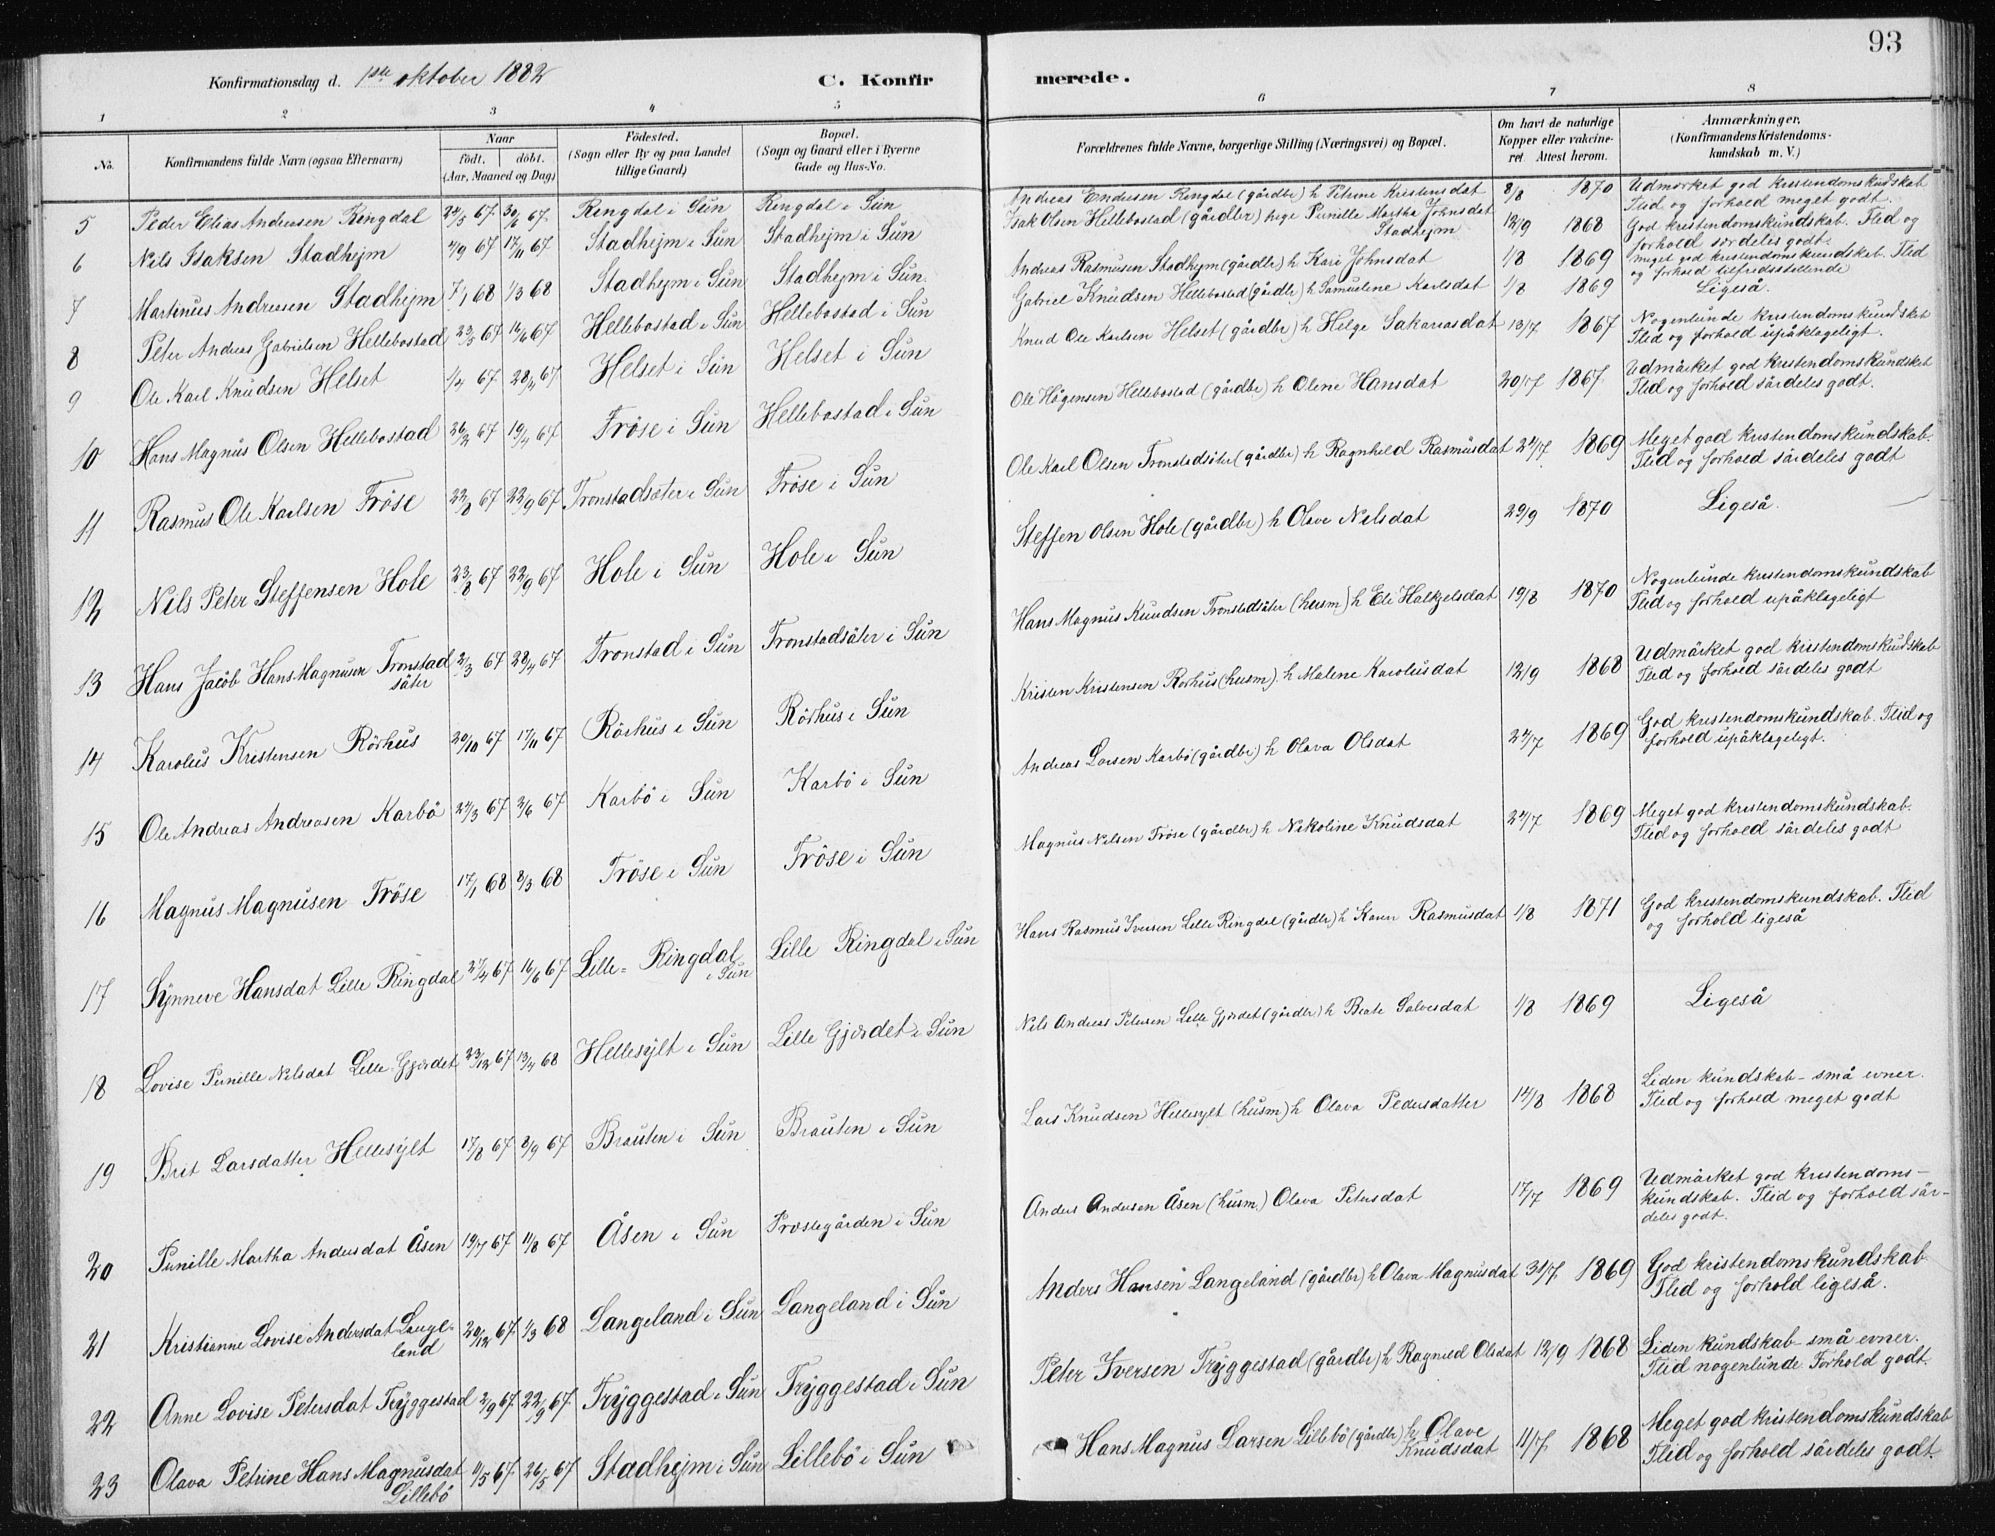 93
Konfirmationsdag d. 1ste oktober 1882
C. Konfirmerede.
1 2 3 4 5 6 7 8
No. Konfirmandens fulde Navn (ogsaa Efternavn) Naar født. døbt. (Aar, Maaned og Dag) Fødested. (Sogn eller By og paa Landet tillige Gaard) Bopæl. (Sogn og Gaard eller i Byerne Gade og Hus-No. Forældrenes fulde Navne, borgerlige Stilling (Næringsvei) og Bopæl. Om havt de naturlige Kopper eller vakcineret. Attest herom. Anmærkninger. (Konfirmandens Kristendomskundskab m. V.)
5 Peder Elias Andreasen Ringdal 24/5 67. 30/6 67. Ringdal i Sun Ringdal i Sun Andreas Endresen Ringdal (gårdbr) h Petrine Kristensdat 8/8 1870 Udmærket god kristendomskundskab
Flid og forhold meget godt.
6 Nils Isaksen Stadhejm 4/9 67 17/11 67 Stadhejm i Sun Stadhejm i Sun Isak Olsen Hellebostad (gårdbr) Pernille Martha Johnsdat
Stadhejm 12/9 1868 God kristendomskundskab. Flid og
forhold særdeles godt.
7 Martinus Andreasen Stadhejm 7/1 68 1/3 68 Stadhejm i Sun Stadhejm i Sun. Andreas Rasmusen Stadhejm (gårdbr) h Kari Johnsdat 1/8 1869 Meget god kristendomskundskab. Flid
og forhold tilfredsstillende
8 Peter Andreas Gabrielsen Hellebostad 23/5 67 16/6 67 Hellebostad i Sun Hellebostad i Sun Gabriel Knudsen Hellebostad (gårdbr) h Samueline Karlsdat 1/8 1869 Ligeså.
9 Ole Karl Knudsen Helset 1/4 67 28/4 67 Helset i Sun Helset i Sun Knud Ole Karlsen Helset (gårdbr) h Helge Sakariasdat 13/7 1867 Nogenlunde kristendomskundskab
Flid og forhold upåklageligt.
10 Hans Magnus Olsen Hellebostad 26/2 67 19/4 67 Frøse i Sun Hellebostad i Sun Ole Högensen Hellebostad (gårdbr) h Olene Hansdat 20/7 1867. Udmärket god kristendomskundskab
Flid og forhold särdeles godt.
11 Rasmus Ole Karlsen Fröse 22/8 67 22/9 67 Tronstadsäter i Sun Fröse i Sun Ole Karl Olsen Tronstadsäter (gårdbr) h Ragnhild Rasmusdat 24/7 1869 Meget god kristendomskundskab.
Flid og forhold särdeles godt
12 Nils Peter Steffensen Hole 23/8 67 22/9 67 Hole i Sun Hole i Sun Steffen Olsen Hole (gårdbr) h Olave Nilsdat 29/9 1870 Ligeså.
13 Hans Jacob HansMagnusen Tronstad
säter 2/3 67 28/4 67 Tronstad i Sun Tronstadsäter i Sun Hans Magnus Knudsen Tronstadsäter (husm) h Eli 19/8 1870 Nogenlunde kristendomskundskab
Flid og forhold upåklageligt
14 Karolus Kristensen Rörhus 20/10 67 17/11 67 Rörhus i Sun Rörhus i Sun Kristen Kristensen Rörhus (husm) h Malene Karolusdat 12/9 1868 Udmärket god kristendomskundskab
Flid og forhold särdeles godt
15 Ole Andreas Andreasen Karbö 24/3 67 2/6 67 Karbö i Sun Karbö i Sun Andreas Larsen Karbö (gårdbr) h Olava Olsdat 24/7 1869 God kristendomskundskab. Flid og
forhold upåklageligt.
16 Magnus Magnusen Fröse 17/1 68 8/3 68 Fröse i Sun Fröse i Sun Magnus Nilsen Fröse (gårdbr) h Nikoline Knudsdat 24/7 1869 Meget god kristendomskundskab.
Flid og forhold särdeles godt
17 Synneve Hansdat Lille Ringdal 27/4 67 16/6 67 Lille- Ringdal
i Sun Lille Ringdal i Sun Hans Rasmus Iversen Lille Ringdal (gårdbr) h Karen Rasmusdat 1/8 1871 God kristendomskundskab. Flid
og forhold ligeså
18 Lovise Pernille Nilsdat Lille-Gjerdet 23/12 67 13/4 68 Hellesylt i Sun Lille Gjerdet i Sun Nils Andreas Petersen Lille Gjerdet (gårdbr) h Beate Salvesdat 1/8 1869 Ligeså
19 Brit Larsdatter Hellesylt 17/8 67 8/9 67 Brauten i Sun Brauten i Sun Lars Knudsen Hellesylt (husm) h Olava Pedersdatter 14/8 1868 Liden kundskab - små evner.
Flid og forhold meget godt
20 Pernille Martha Andersdat Åsen 19/7 67 11/8 67 Åsen i Sun Prestegården i Sun Anders Andersen Åsen (husm.) Olava Petersdat 17/7 1869 Udmärket god kristendoms-
kundskab. Flid og forhold sär-
deles godt.
21 Kristianne Lovise Andersdat Lange-
land 20/12 67. 1/3 68 Langeland i Sun Langeland i Sun Anders Hansen Langeland (gårdbr) h Olava Magnusdat 31/7. 1869 God kristendomskundskab
Flid og forhold ligeså.
22 Anne Lovise Petersdat Tryggestad 2/9 67. 22/9 67. Tryggestad i Sun Tryggestad i Sun Peter Iversen Tryggestad (gårdbr) h Ragnild Olsdat 12/9 1868 Liden kundskab - små evner.
Flid nogenlunde. Forhold godt.
23 Olava Petrine Hans Magnusdat
Lillebö 11/5 67. 26/5 67 Stadhejm i Sun Lillebö i Sun Hans Magnus Larsen Lillebö (gårdbr) h Olave
Knudsdat 11/7. 1868 Meget god kristendomskundskab
Flid og forhold särdeles godt.